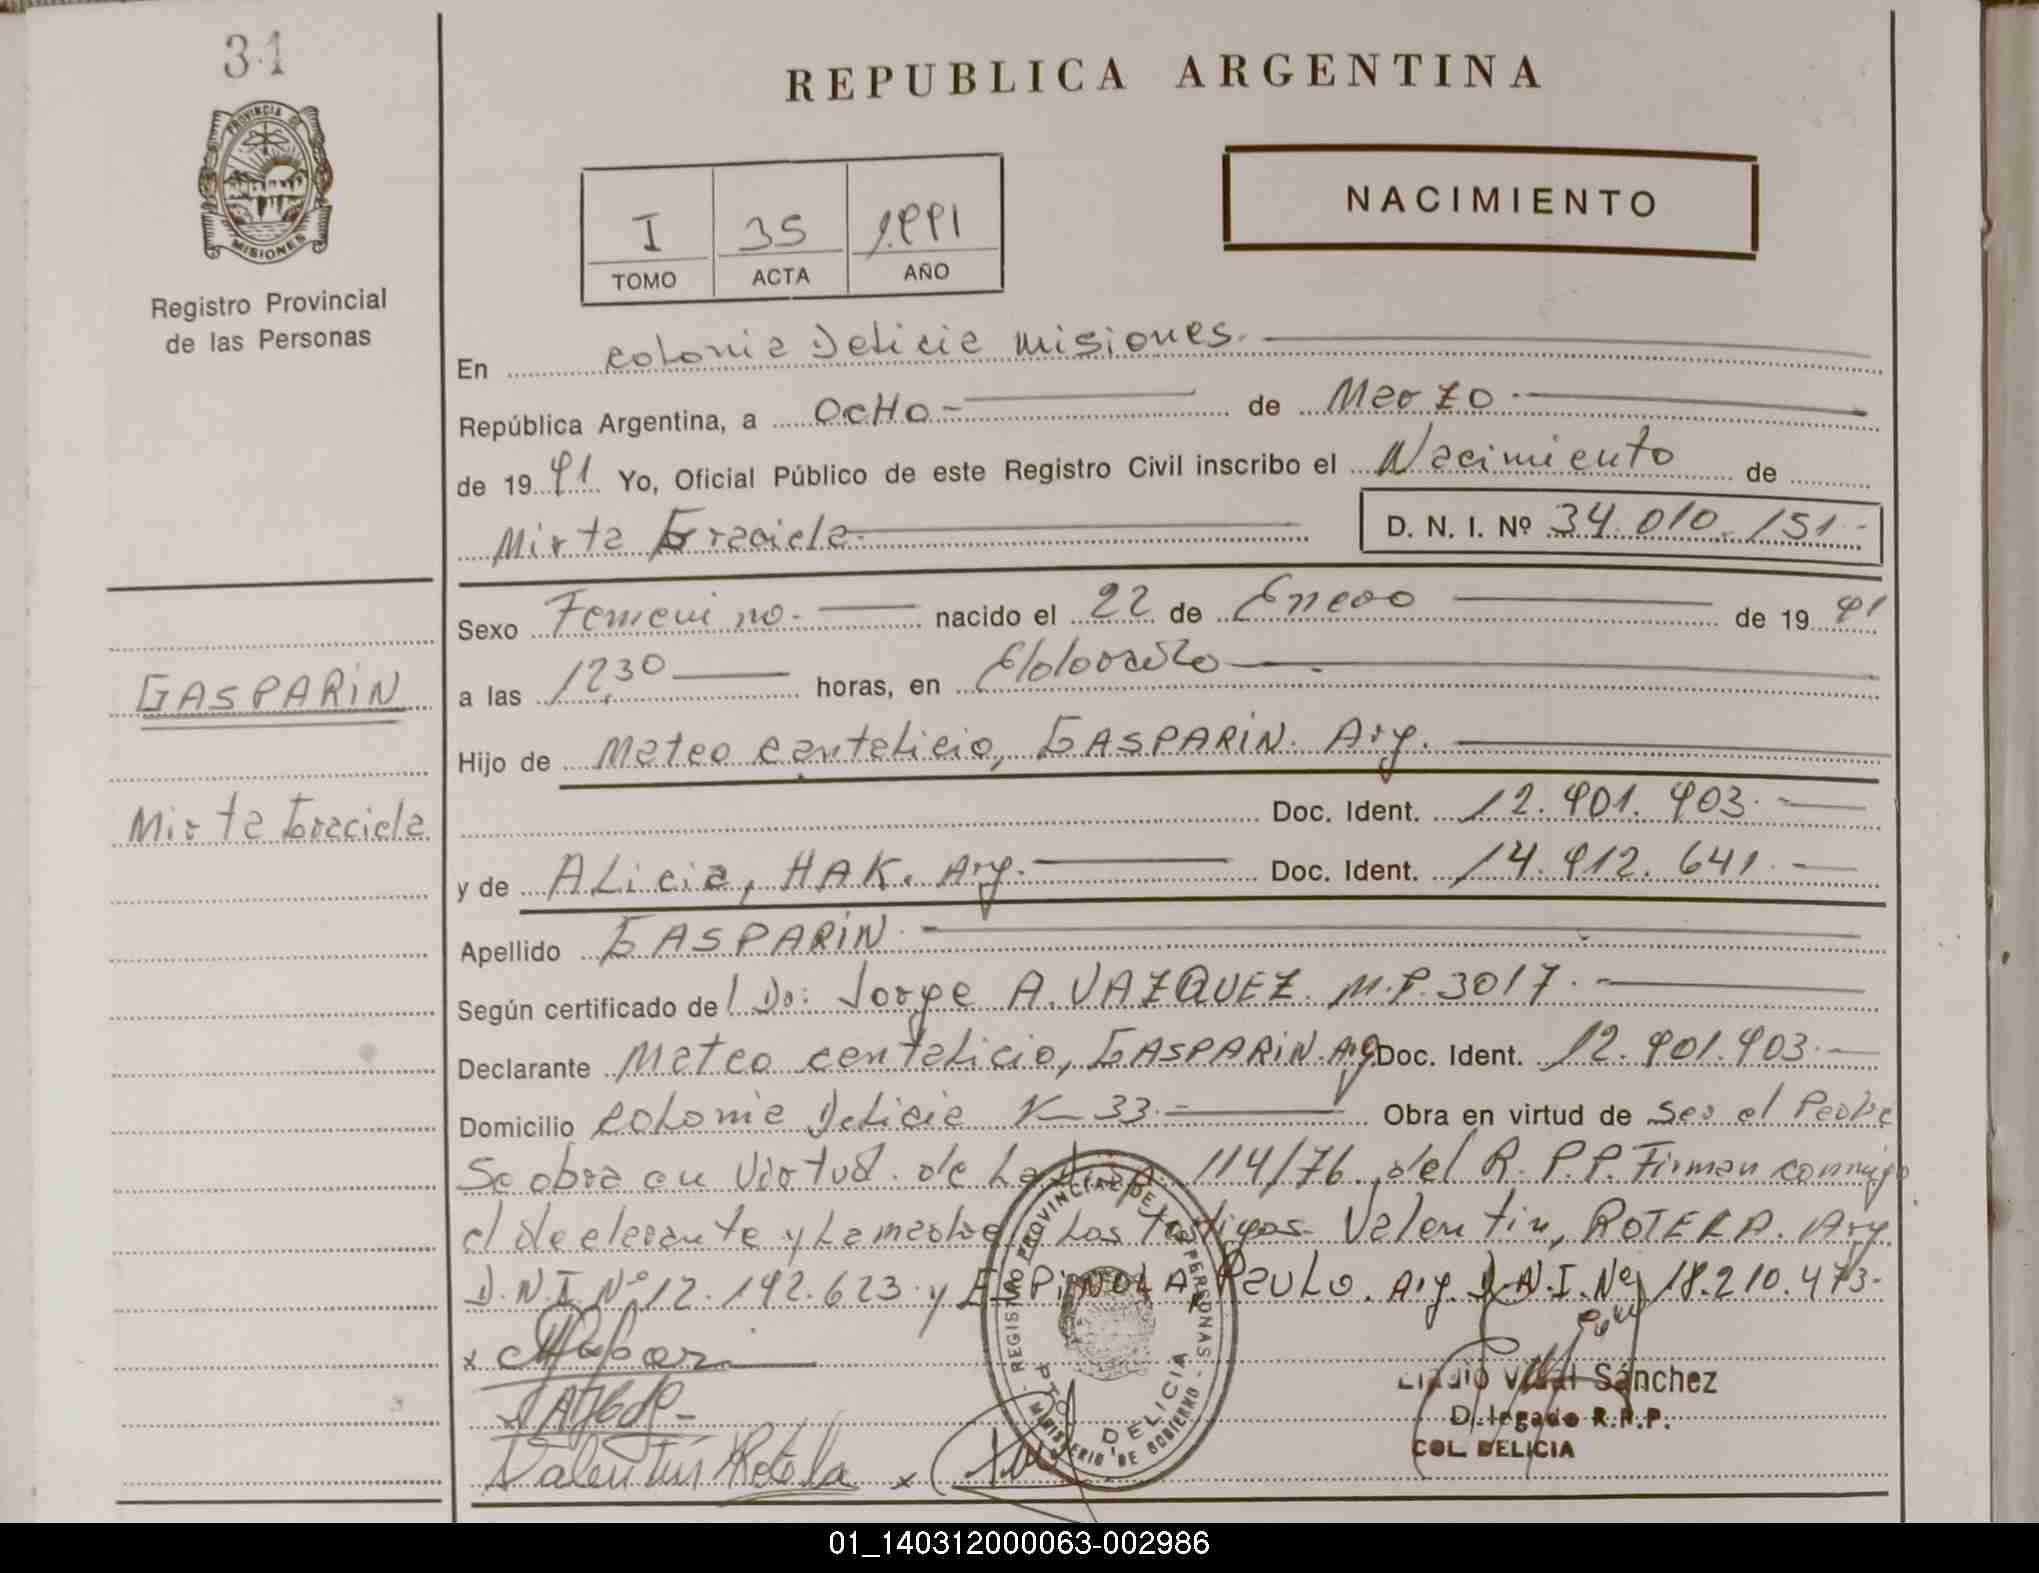 31
REPUBLICA ARGENTINA
PROVINCIA DE
MISIONES
Registro Provincial
de las Personas
I 35 1.991
TOMO ACTA AÑO
NACIMIENTO
En colonia Delicia misiones.
República Argentina, a OcHo - de Marzo
de 19 91 Yo, Oficial Público de este Registro Civil inscribo el Nacimiento de
Mirta Graciela D. N. I. Nº 34.010.151.-
Sexo Femenino. nacido el 22 de Enero de 19 91
a las 12,30 horas, en Eldorado
GASPARIN
Hijo de Mateo cantalicio, GASPARIN. Arg.
Mirta Graciela
Doc. Ident. 12.901.903.-
y de ALicia, HAK. Arg. Doc. Ident. 14.912.641.-
Apellido GASPARIN.
Según certificado de l Dr: Jorge A. VAZQUEZ. M.P. 3017.
Declarante Mateo cantalicio, GASPARIN. Arg. Doc. Ident. 12.901.903.-
Domicilio colonia Delicia K-33.- Obra en virtud de Ser el Padre
Se obra en Virtud. de La 114/76. del R.P.P. Firman conmigo
el declarante y La madre Los testigos Valentin, ROTELA. Arg.
D.N.I. Nº 12.192.623. y ESPINOLA, PauLo. Arg. D.N.I. Nº 18.210.473.-
REGISTRO PROVINCIAL DE LAS PERSONAS
PTO DELICIA
MINISTERIO DE GOBIERNO
Eladio Vidal Sánchez
Delegado R.P.P.
COL. DELICIA
Valentin Rotela x
01_140312000063-002986